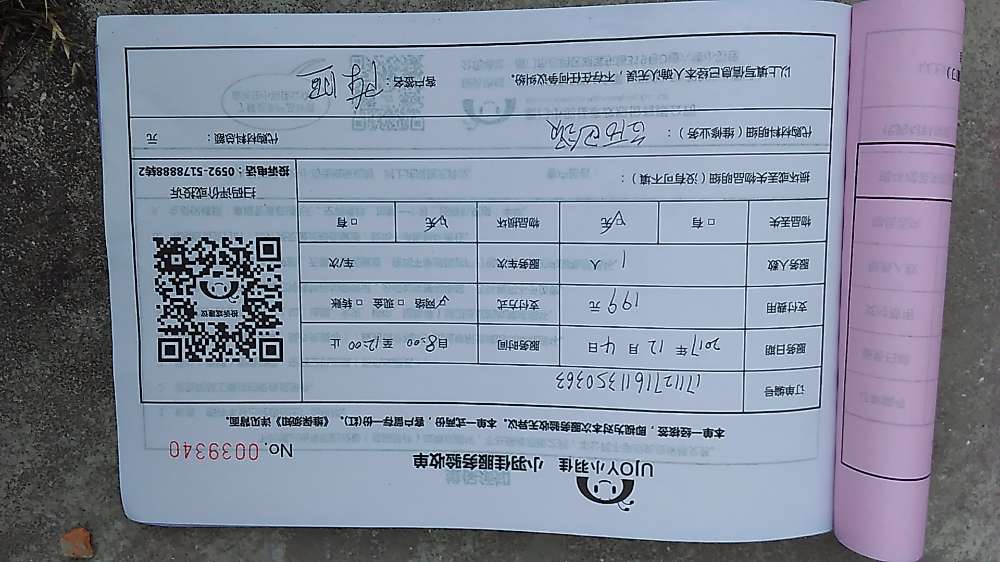 UJOY小羽佳 小羽佳服务验收单
No. 0039340
本单一经接签,即视为对本次服务验收无异议。本单一式两份,客户留存一份(红)。《维保须知》详见背面。
订单编号 17112711611350363
服务日期 2017年12月4日 服务时间 自8:00至12:00止
支付费用 199元 支付方式 ☑网络 □现金 □转账
服务人数 1人 服务车次 车/次
物品丢失 □有 ☑无 物品损坏 ☑无 □有
投诉或建议
扫码评价或投诉
投诉电话:0592-5178888转2
损坏或丢失物品明细(没有可不填):
代购材料明细(维修业务):
代购材料总额: 元
以上填写信息已经本人确认无误,不存在任何争议纠纷。 客户签名: